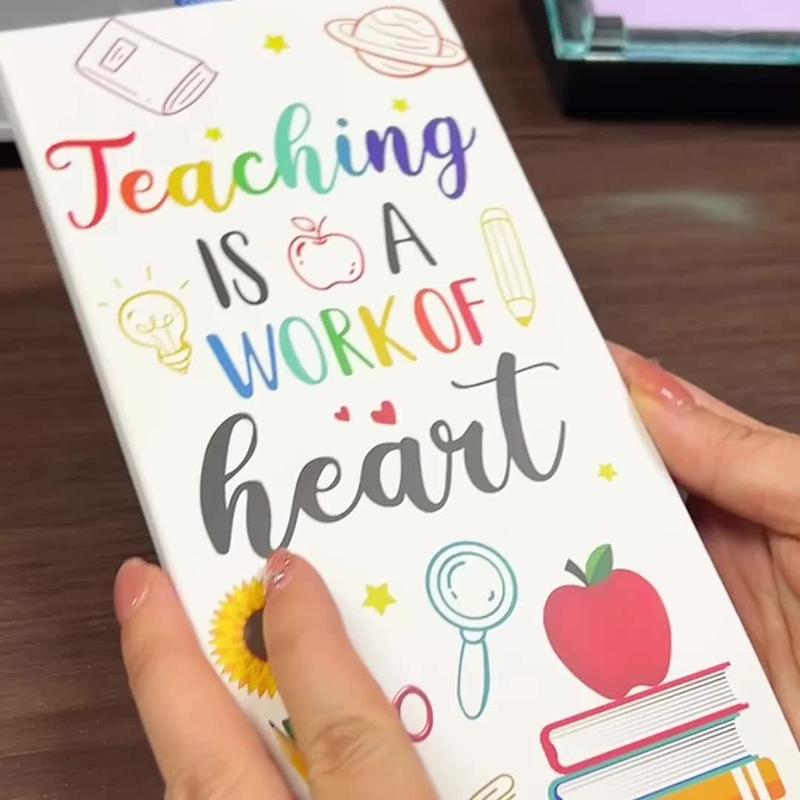 Teaching
IS A
WORK OF
heart